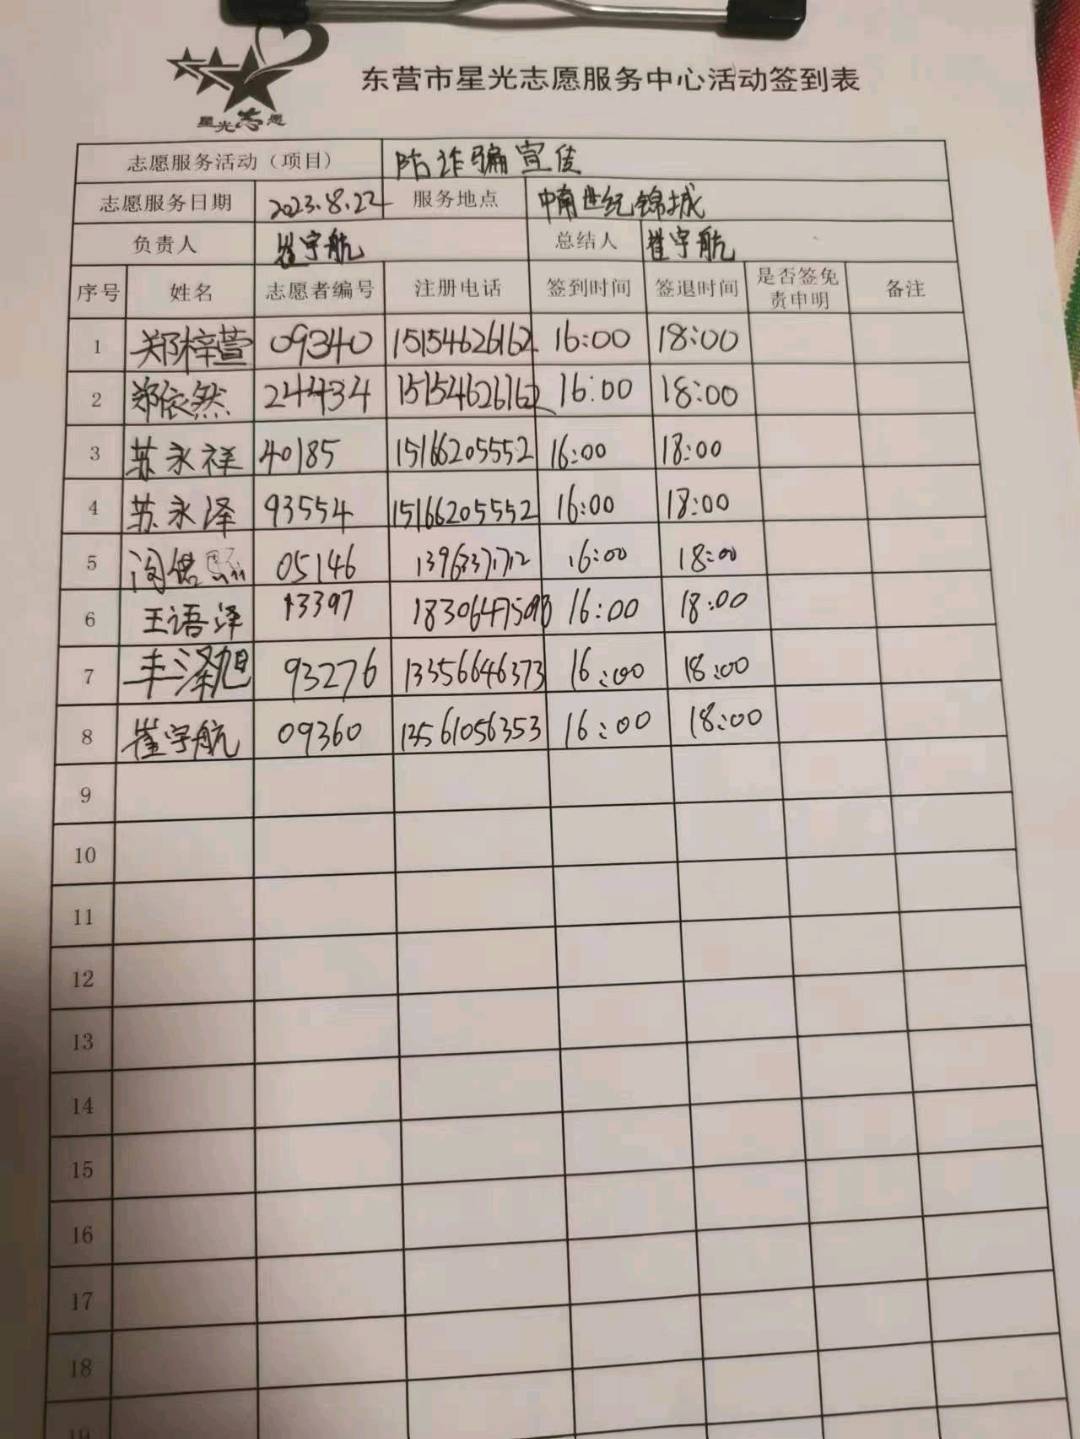 星光志愿
东营市星光志愿服务中心活动签到表
志愿服务活动（项目） 防诈骗宣传
志愿服务日期 2023.8.22 服务地点 中南世纪锦城
负责人 崔宇航 总结人 崔宇航
序号 姓名 志愿者编号 注册电话 签到时间 签退时间 是否签免责申明 备注
1 郑梓萱 09340 15154626162 16:00 18:00
2 郑依然 244434 15154626162 16:00 18:00
3 苏永祥 40185 15166205552 16:00 18:00
4 苏永泽 93554 15166205552 16:00 18:00
5 05146 16:00 18:00
6 王语泽 13397 16:00 18:00
7 丰泽旭 93276 13356646373 16:00 18:00
8 崔宇航 09360 13561056353 16:00 18:00
9
10
11
12
13
14
15
16
17
18
19